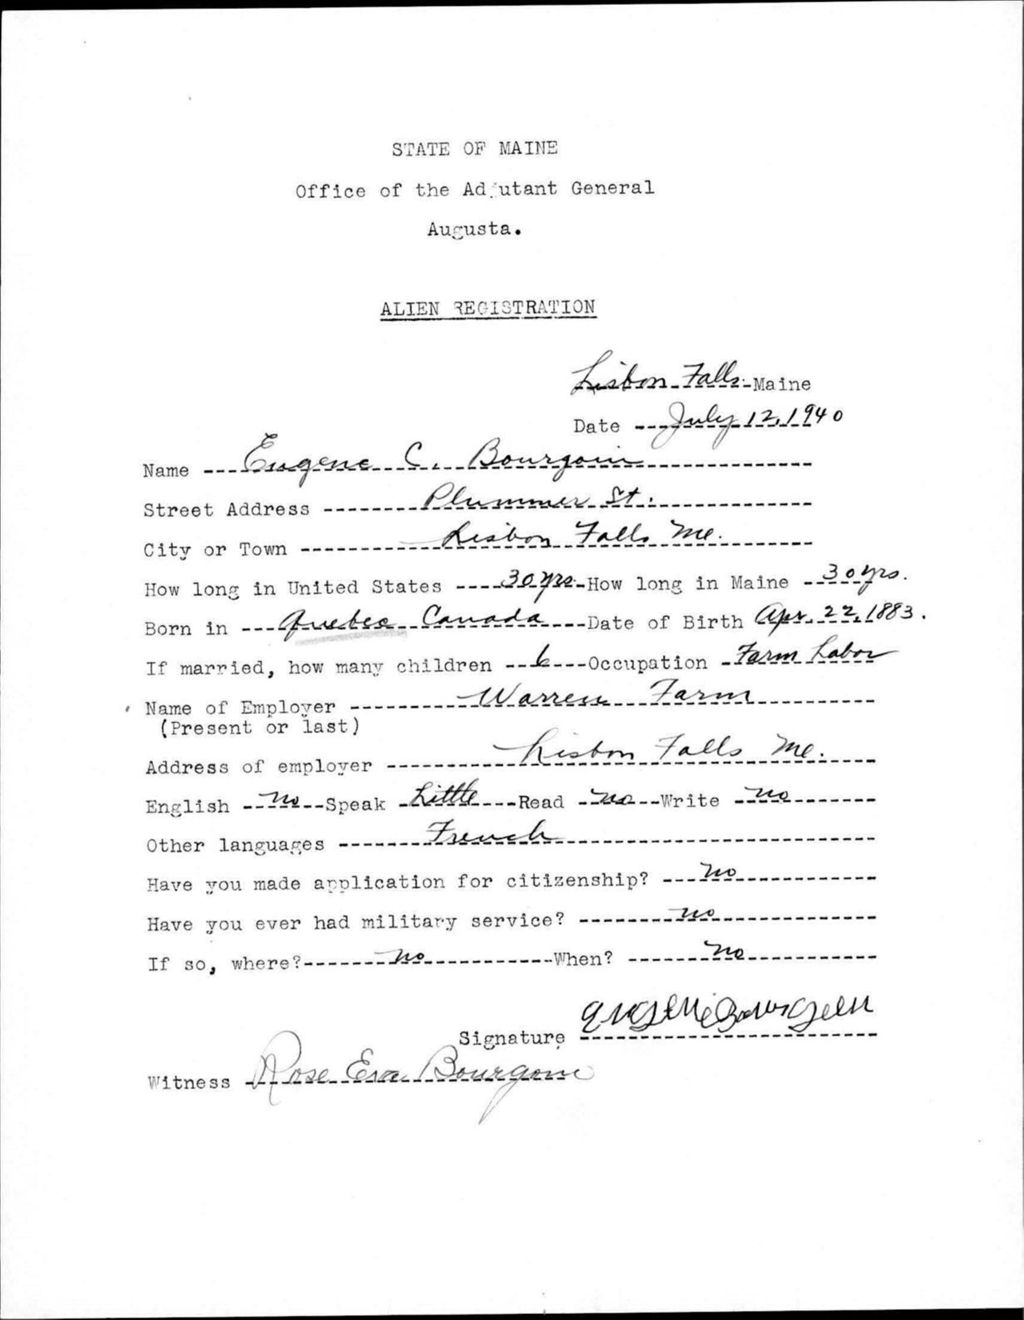 STATE OF MAINE
Office of the Adjutant General
Augusta.
ALIEN REGISTRATION
Lisbon Falls Maine
Date July 12, 1940
Name Eugene C. Bourgoin
Street Address Plummer St.
City or Town Lisbon Falls Me.
How long in United States 30 yrs How long in Maine 30 yrs.
Born in Quebec Canada Date of Birth Apr. 22, 1883.
If married, how many children 6 Occupation Farm Labor
Name of Employer Warren Farm
(Present or last)
Address of employer Lisbon Falls Me.
English No Speak Little Read No Write No
Other languages French
Have you made application for citizenship? No
Have you ever had military service? No
If so, where? No When? No
Signature
Witness Rose Eva Bourgoin